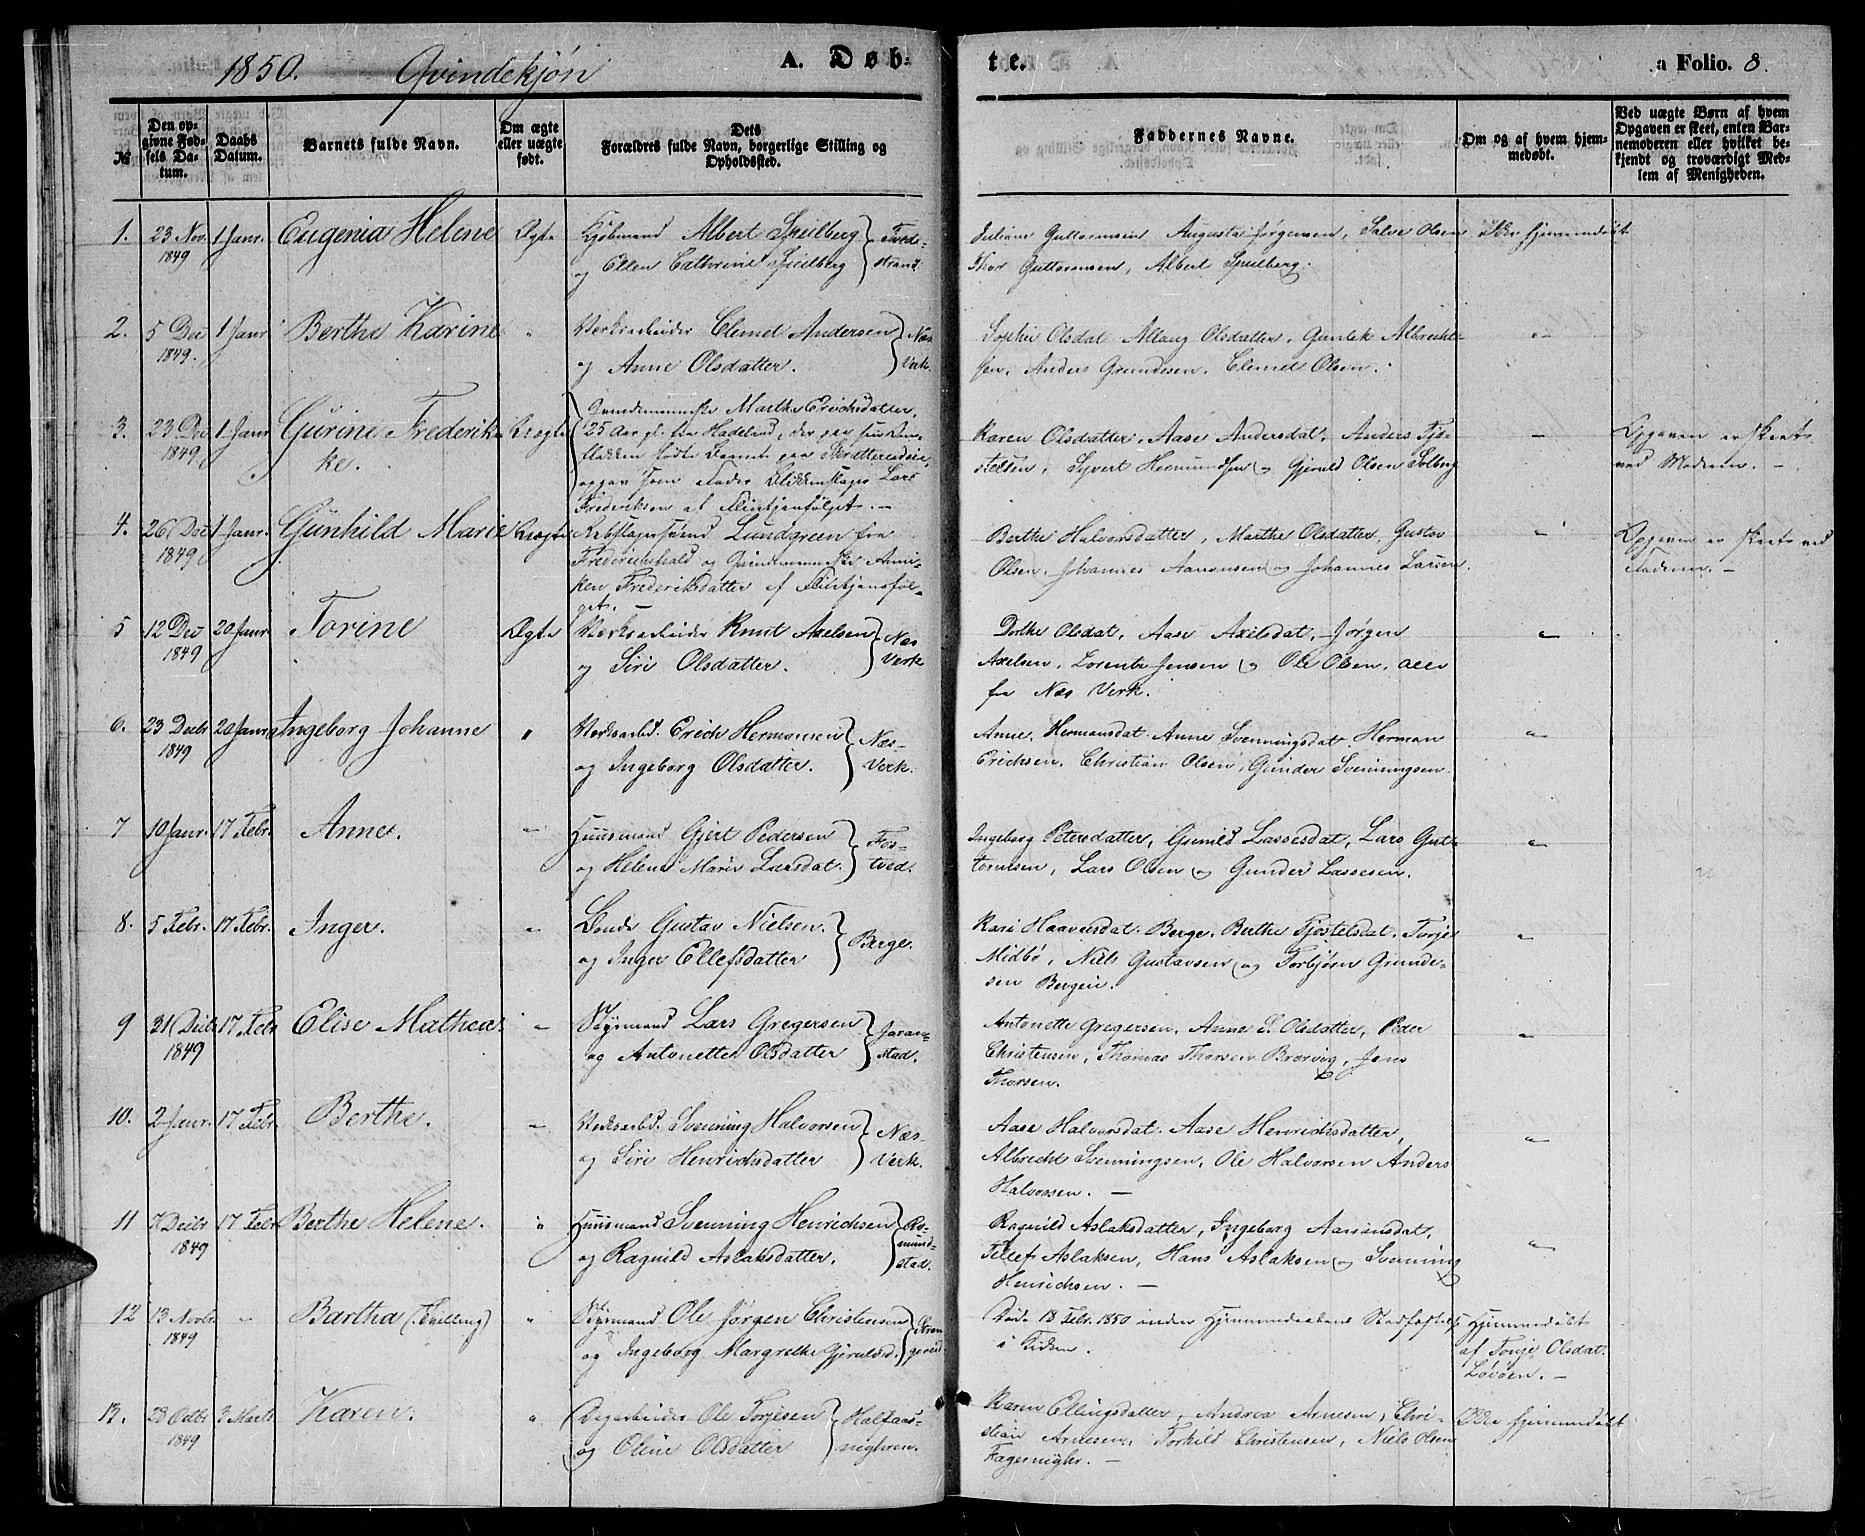 1850. Qvindekjön A. Døb- te. a Folio. 8.
№ Den opgivne Fødsels Datum. Daabs Datum. Barnets fulde Navn. Om ægte eller uægte født. Dets Forældres fulde Navn, borgerlige Stilling og Opholdssted. Faddernes Navne. Om og af hvem hjemmedøbt. Ved uægte Børn af hvem Opgaven er skeet, enten Barnemoderen eller hvilket bekjendt og troværdigt Medlem af Menigheden.
1. 23 Nov. 1 Janr. Eugenia Helene Ægte Kjøbmand Albert Speilberg Tvede- Juliane Guttormsen Augusta Jørgensen, Salve Olsen Ikke hjemmedøbt
1849 og Ellen Cathrine Speilberg strand. Thor Guttormsen, Albert Speilberg.
2. 5 Dec 1 Janr Berthe Karine " Verksarbeider Clemet Andersen Næs Sophie Olsdat Allaug Olsdatter, Gunlek Albrecht-
1849. og Anne Olsdatter. Verk. sen, Anders Grundesen, Clemet Olsen.
3. 23 Dec 1 Janr Gurine Frederik- Uægte Qvindemenneske Marthe Erichsdatter,
1849 ke. 25 Aar gl. fra Hadeland, der paa sin Om- Karen Olsdatter, Aase Andersdat, Anders Fjø- Opgaven er skeet
flakken fødte Barnet paa Skrattereidie, stelsen, Syvert Hermundsen og Gjeruld Olsen Solberg ved Moderen. -
opgav som Fader Blikkenslager Lars
Frederiksen af Fantefølget. -
4. 26 Dec 1 Janr. Gunhild Marie Uægte Lundgreen fra Berthe Halvorsdatter, Marthe Olsdatter, Gustav Opgaven er skeet ved
1849 Frederikshald og Qvindemenneske Anni- Olsen, Johannes Aanonsen og Johannes Larsen. Faderen. -
ken Frederiksdatter af
get. -
5 12 Dec 20 Janr Torine Ægte Verksarbeider Knut Axelsen Næs Dorthe Olsdat, Aase Axelsdat, Jørgen
1849 og Siri Olsdatter. Verk Axelsen, Lorents Jensen og Ole Olsen, alle
fra Næs Verk.
6. 23 Decbr 20 Janr Ingeborg Johanne " Verksarbd. Erich Hermansen Næs- Anne Hermansdat. Anne Svenningsdat. Herman
1849 og Ingeborg Olsdatter. Verk. Erichsen, Christian Olsen, Gunder Svenningsen.
7 10 Janr. 17 Febr. Anne. " Huusmand Gjert Pedersen Fos- Ingeborg Petersdatter, Gunild Lassesdat, Lars Gut-
og Helene Marie Larsdat. tved. tormsen, Lars Olsen og Gunder Lassesen.
8. 5 Febr. 17 Febr. Inger. " Bonde Gustav Nielsen. Berge. Kari Haavorsdat. Berge. Berthe Fjøstelsdat. Torje
og Inger Ellefsdatter Midbø, Niels Gustavsen og Torbjørn Grunde-
sen Bergeie.
9 31 Decbr 17 Febr Elise Mathea " Huysmand Lars Gregersen Joran- Antonette Gregersen, Anne S. Olsdatter, Peder
1849 og Antonette Olsdatter stad. Christensen, Thomas Thorsen Brovig, Jens
Thorsen.
10. 2 Janr. 17 Febr Berthe. " Verksarbd. Svenning Halvorsen Næs- Aase Halvorsdat. Aase Henrichsdatter,
og Siri Henrichsdatter Verk. Albrecht Svenningsen, Ole Halvorsen Anders
Halvorsen. -
11 7 Decbr 17 Febr Berthe Helene. " Huusmand Svenning Henrichsen Ro- Ragnild Aslaksdatter, Ingeborg Aanonsdat,
1849 og Ragnild Aslaksdatter. mund- Tellef Aslaksen, Hans Aslaksen og Svenning
stad. Henrichsen. -
12 13 Novbr " Bartha (Tvilling) " Huysmand Ole Jørgen Christensen Død 18 Febr. 1850 inden Hjemmedaabens Stadfæstelse Hjemmedøbt
1849 og Ingeborg Margrethe Gjeruldsd. i Kirken. af Tonje Olsdat.
Løvøen. -
13. 28 Octbr 3 Marts Karen. " Dagarbeider Ole Torjesen Halfaas- Karen Ellingsdatter, Andrea Arnesen, Chri- Ikke hjemmedøbt
1849 og Oline Olsdatter nighren. stian Arnesen, Torkild Christensen, Niels Olsen
Fagernighr. -